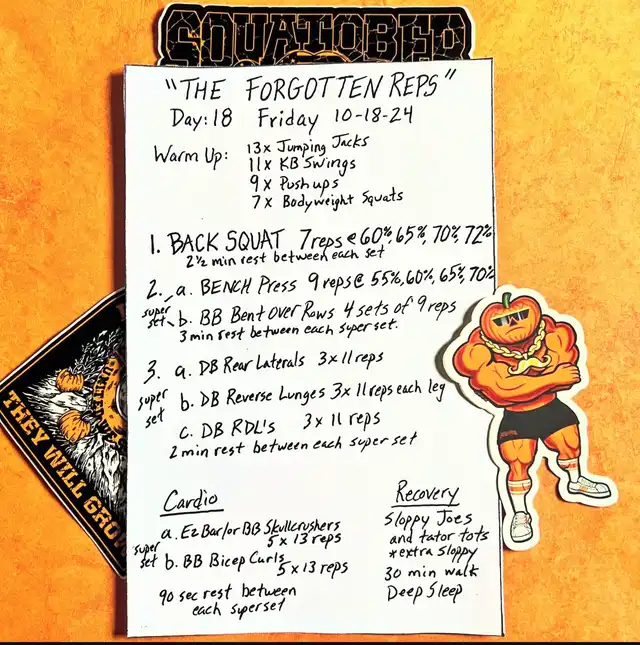 SQUATOBER
"THE FORGOTTEN REPS"
Day: 18 Friday 10-18-24
Warm Up: 13x Jumping Jacks
11x KB Swings
9x Pushups
7x Bodyweight Squats
1. BACK SQUAT 7reps @ 60%, 65%, 70%, 72%
2½ min rest between each set
2. a. BENCH Press 9 reps @ 55%, 60%, 65%, 70%
super set b. BB Bent Over Rows 4 sets of 9 reps
3 min rest between each super set.
3. a. DB Rear Laterals 3x11 reps
super set b. DB Reverse Lunges 3x11 reps each leg
c. DB RDL's 3x11 reps
2 min rest between each super set
Cardio
a. EZ Bar/or BB Skullcrushers
5x13 reps
super set b. BB Bicep Curls
5x13 reps
90 sec rest between
each superset
Recovery
Sloppy Joes
and tator tots
*extra sloppy
30 min walk
Deep Sleep
THEY WILL GROW